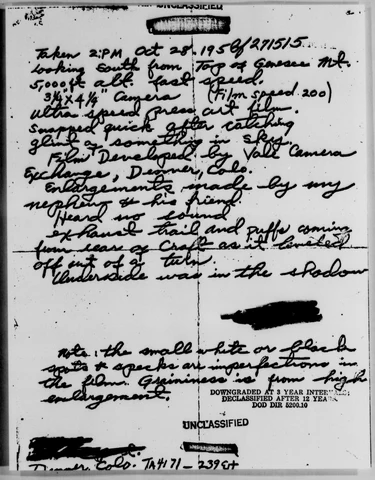 UNCLASSIFIED
Taken 2:PM Oct 28-1956/271515.
looking South from Top of Genesee Mt.
5,000 ft alt. fast speed.
3¼ X 4¼" Camera (Film Speed 200)
Ultra speed press art film.
Snapped quick after catching
glint of something in sky.
Film Developed by Vale Camera
Exchange, Denver, Colo.
Enlargements made by my
nephew & his friend.
Heard no sound
exhaust trail and puffs coming
from rear of Craft as it leveled
off out of a turn.
Underside was in the shadow
Note: the small white or black
spots & specks are imperfections in
the film. Graininess is from high
enlargement.
DOWNGRADED AT 3 YEAR INTERVALS;
DECLASSIFIED AFTER 12 YEARS.
DOD DIR 5200.10
UNCLASSIFIED
Denver, Colo. TA4171-239